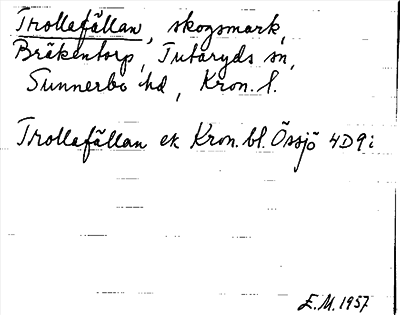 Trollafällan, skogsmark,
Bråkentorp, Tutaryds sn,
Sunnerbo hd, Kron. l.
Trollafällan ek Kron. bl. Össjö 4D9i
E.M. 1957